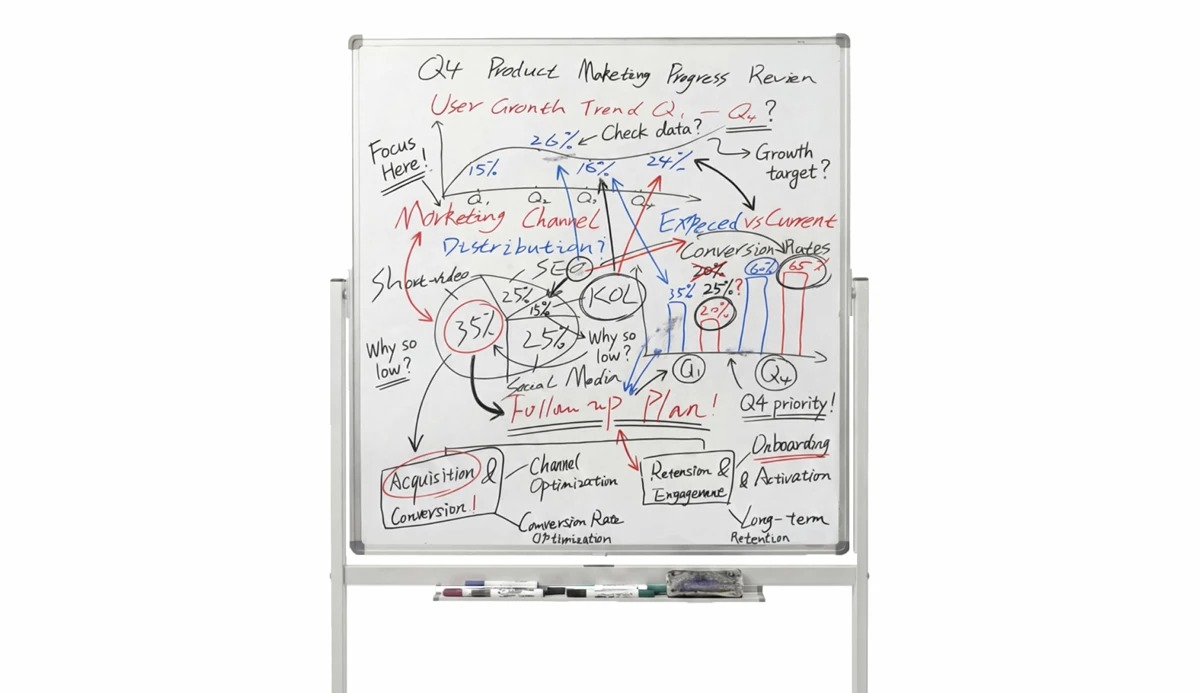 Q4 Product Marketing Progress Review
User Growth Trend Q1 - Q4?
26% Check data?
Focus Here!
15%
16%
24%
Growth target?
Q1 Q2 Q3 Q4
Marketing Channel
Distribution?
Expeced vs Current
Conversion Rates
Short-video
SEO
KOL
35%
25%
15%
25%
Why so low?
Why so low?
Social Media
35%
20%
25%?
20%
60%
65%
Q1
Q4
Q4 priority!
Follow up Plan!
Acquisition & Conversion!
Channel Optimization
Conversion Rate Optimization
Retension & Engagement
Onboarding & Activation
Long-term Retention